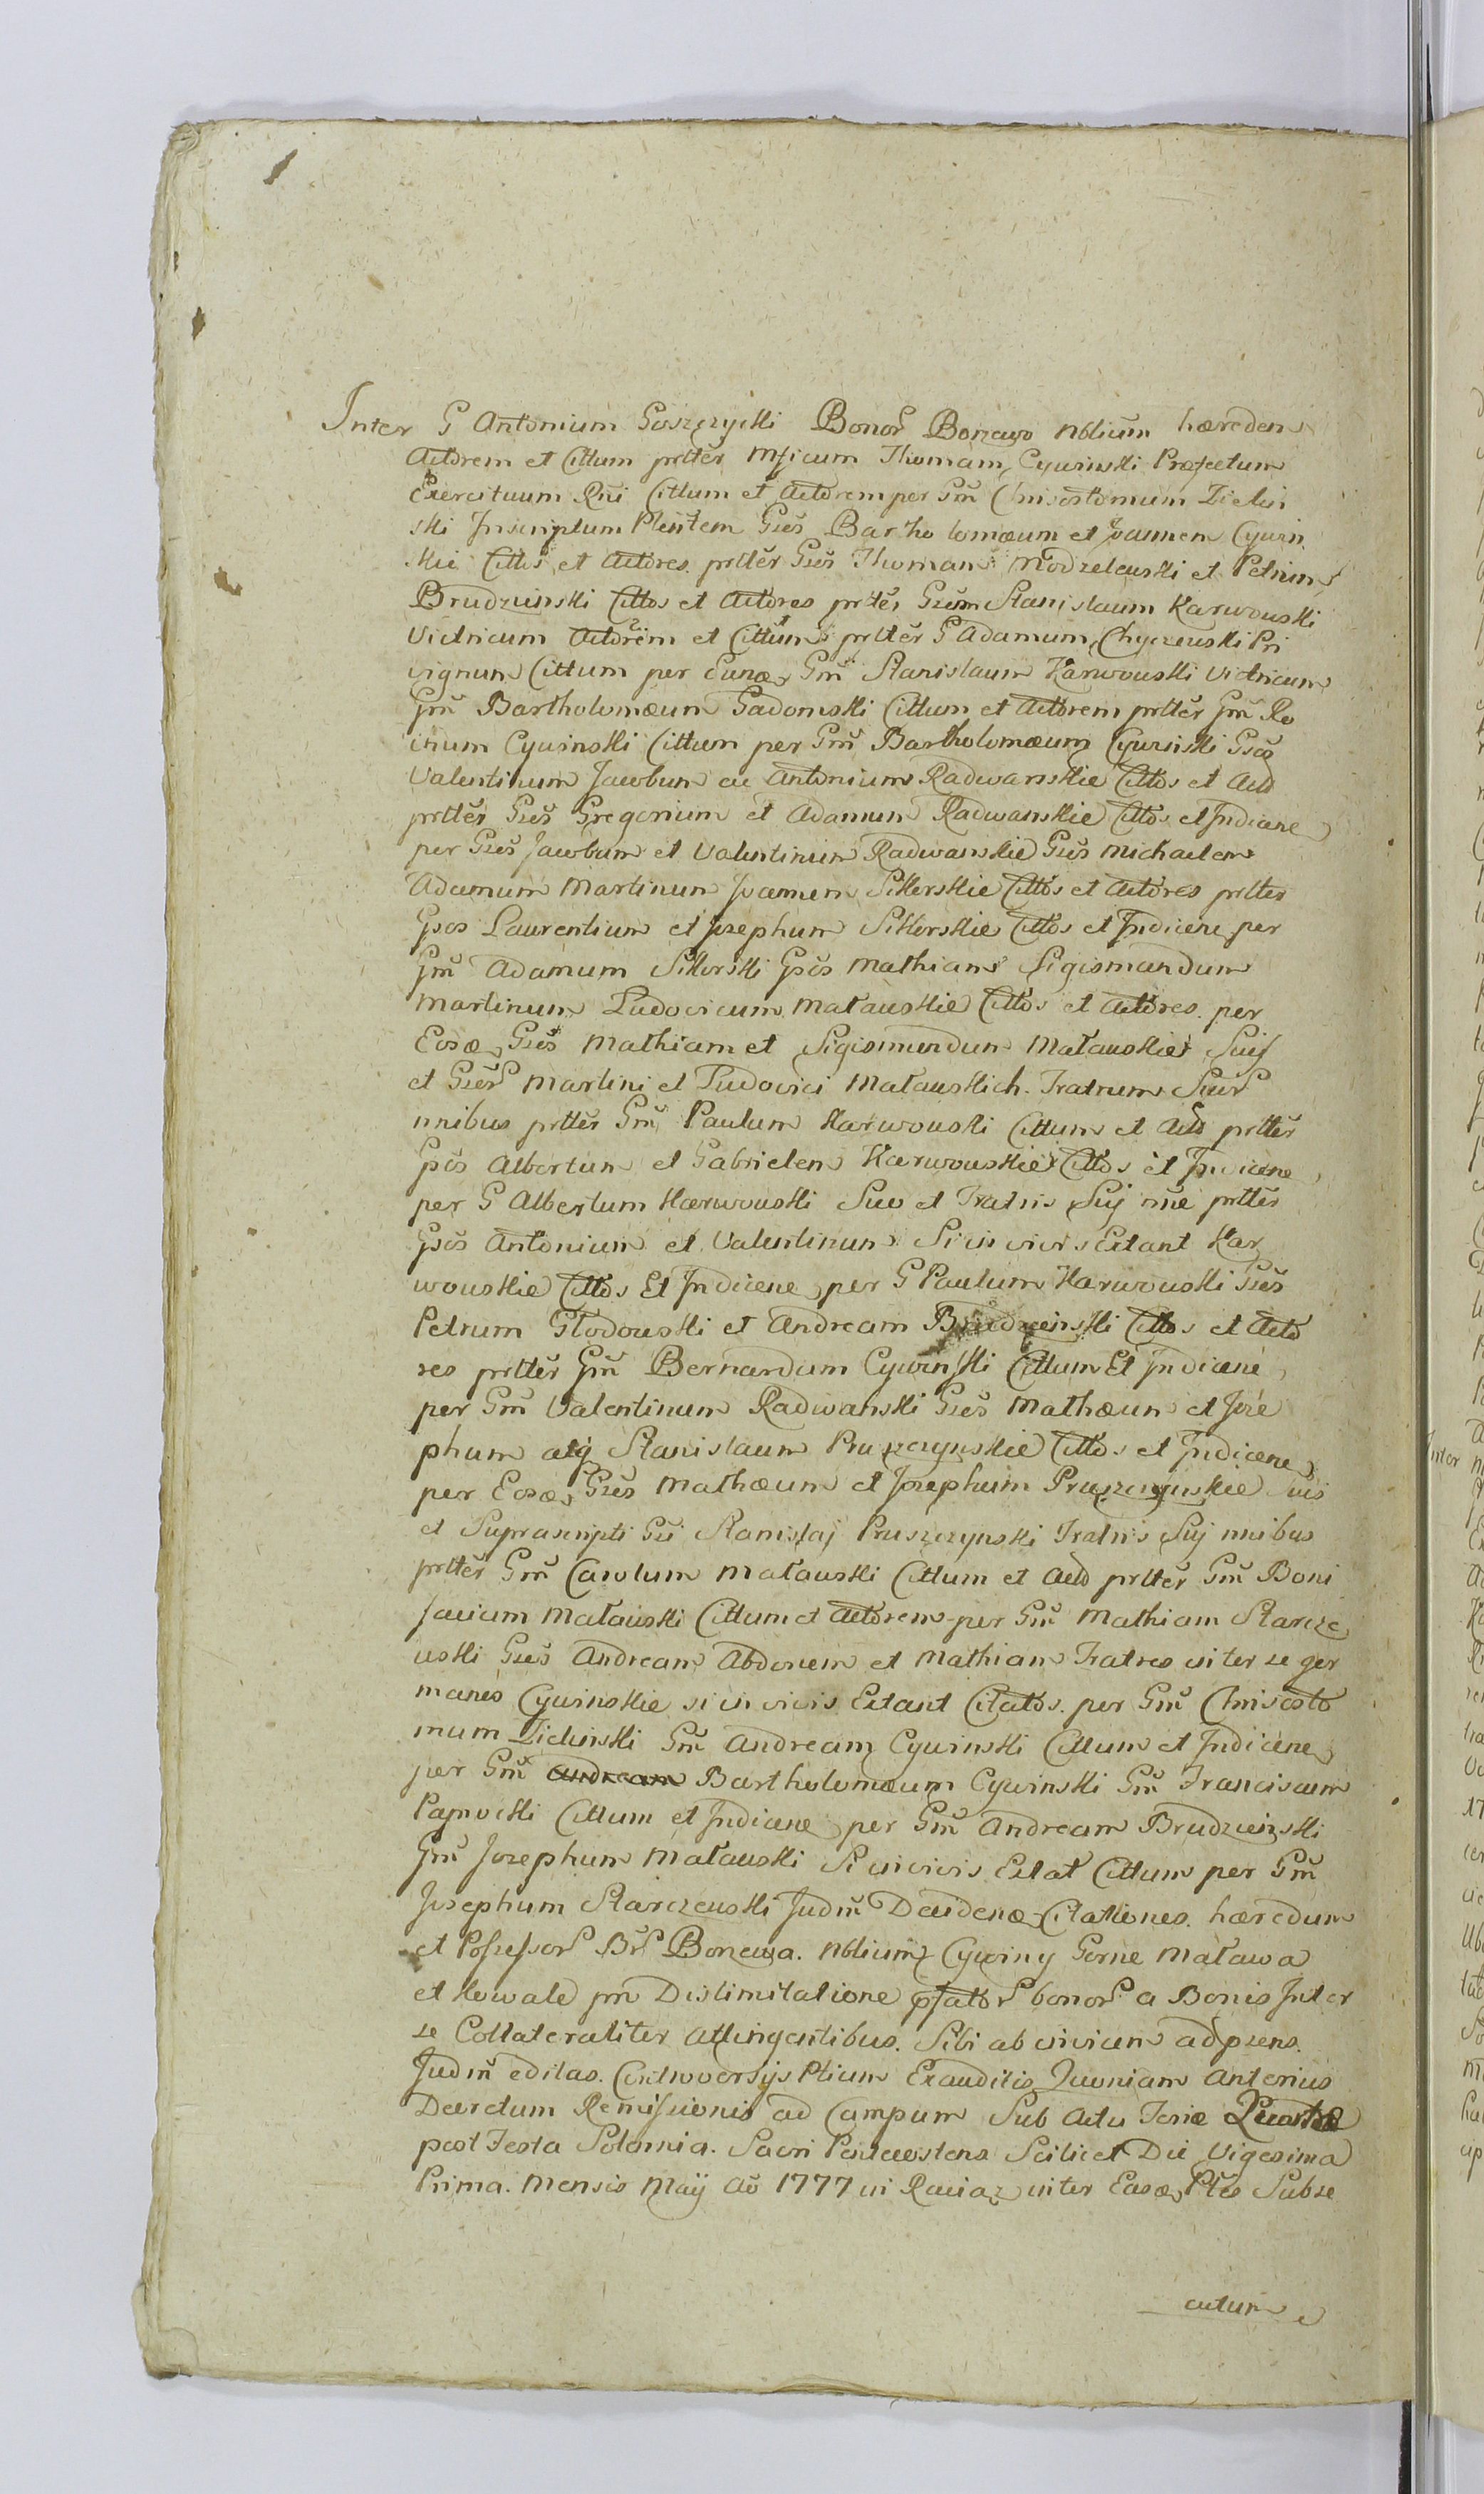 Inter G Antonium Goszczycki Bonor Bonzewo Nblium hæredem
Actorem et Cittum prltēr Mficum Thomam Cywinski Præfectum
Exercituum Rni Cittum et Actorem per Gm̃ Chrisostomum Zielin
ski Inscriptum Pleñtem Gses Bartholomæum et Joannem Cywin
skie Cittos et Actores prltēr Gses Thomam Modzelewski et Petrum
Brudzinski Cittos et Actores prltēr Gsum Stanislaum Karwowski
Victricum Actorem et Cittum prltēr G Adamum Chyczewski Pri
vignum Cittum per Eunæ Gm̃ Stanislaum Karwowski Victricum
Gm̃ Bartholomæum Gadomski Cittum et Actorem prltēr Gm̃
Cywinski Cittum per Gm̃ Bartholomæum Cywinski Gsos
Valentinum Jacobum ac Antonium Radwanskie Cittos et Acto
prltēr Gses Gregorium et Adamum Radwanskie Cittos et Indicane
per Gses Jacobum et Valentinum Radwanskie Gses Michaelem
Adamum Martinum Joannem Sikorskie Cittos et Actores prltēr
Gsos Laurentium et Josephum Sikorskie Cittos et Indicane per
Gm̃ Adamum Sikorski Gsos Mathiam Sigismundum
Martinum Ludovicum Matawskie Cittos et Actores per
Eosæ Gses Mathiam et Sigismundum Matawskie Suis
et Gser Martini et Ludovici Matawskich Fratrum Suor
nnibus prltēr Gm̃ Paulum Karwowski Cittum et Acto prltēr
Gsos Albertum et Gabrielem Karwowskie Cittos et Indicane
per G Albertum Karwowski Suo et Fratris Sui nne prltēr
Gsos Antonium et Valentinum Si in vivis Extant Kar
wowskie Cittos Et Indicane per G Paulum Karwowski Gses
Petrum Glodowski et Andream Brudzinski Cittos et Acto
res prltēr Gm̃ Bernardum Cywinski Cittum Et Indicane
per Gm̃ Valentinum Radwanski Gses Mathæum et Jose
phum atq Stanislaum Pruszczynskie Cittos et Indicane
per Eosæ Gses Mathæum et Josephum Pruszczynskie uis
et Suprascripti Gsi Stanislaj Pruszczynski Fratris Suj nnibus
prltēr Gm̃ Carolum Matawski Cittum et Acto prltēr Gm̃ Boni
facium Matawski Cittum et Actorem per Gm̃ Mathiam Starcze
wski Gses Andream Abdonem et Mathiam Fratres inter se ger
manos Cywinskie si in vivis Extant Citatos per Gm̃ Chrisosto
mum Zielinski Gm̃ Andream Cywinski Cittum et Indicane
per Gm̃ Andream Bartholomæum Cywinski Gm̃ Franciscum
Cittum et Indicane per Gm̃ Andream Brudzinski
Gm̃ Josephum Matawski Si in vivis Extat Cittum per Gm̃
Josephum Starczewski Judm̃ Citationes hæredum
et Possessor Br Bonzewa Nblium Cywiny Gorne Matawa
et Kowale pm̃ Dislimitatione pfator bonor a Bonis Inter
se Collateraliter Attingentibus. Sibi ab invicem ad præns
Judm̃ editas. Controversijs Ptium Exauditis Quoniam Anterius
Decretum Remissionis ad Campum Sub Actu Feriæ Quartæ
post Festa Solomnia Sacri Pentecostens Scilicet Die Vigesima
Prima Mensis Maij Ao 1777 in Raciaz inter Easæ Ptes Subse
cutum